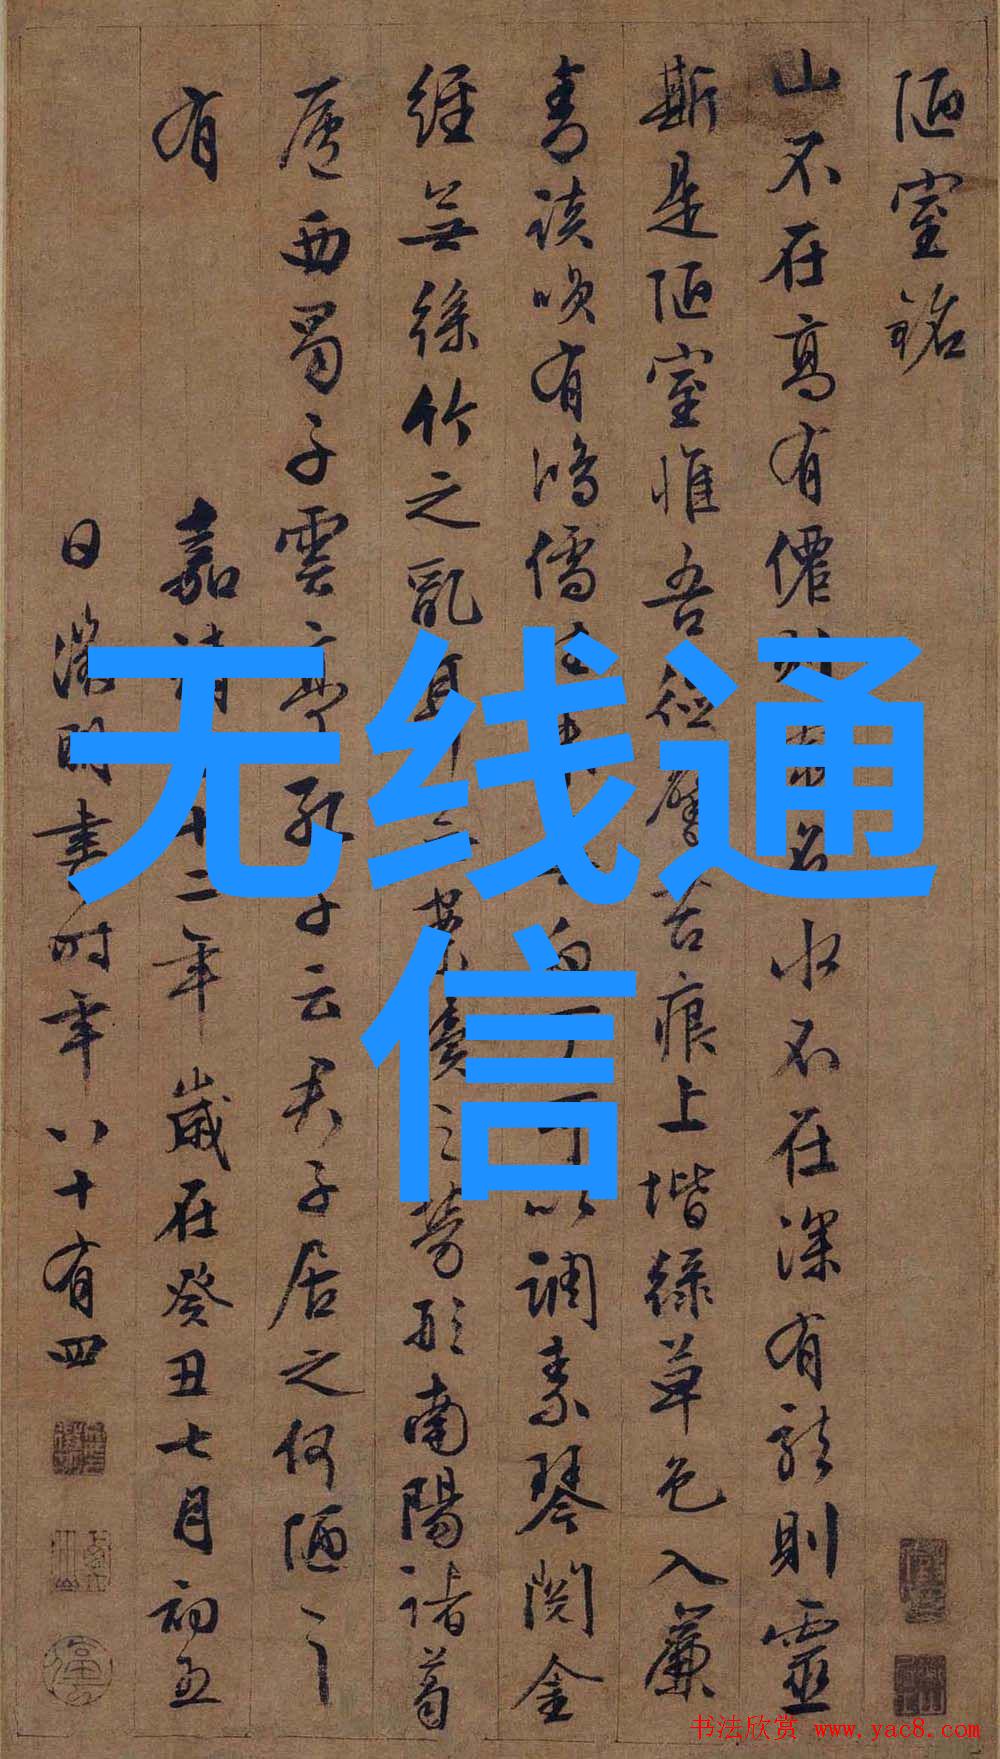 陋室銘
山不在高有僊則名水不在深有龍則靈
斯是陋室惟吾德馨苔痕上堦綠草色入簾
青談咲有鴻儒白丁可以調素琴閱金
經無絲竹之亂耳無案牘之勞形南陽諸葛
廬西蜀子雲亭孔子云君子居之何陋之
有
嘉靖十二年歲在癸丑七月初五
日徵明書時年八十有四
无线通
信
书法欣赏 www.yac8.com